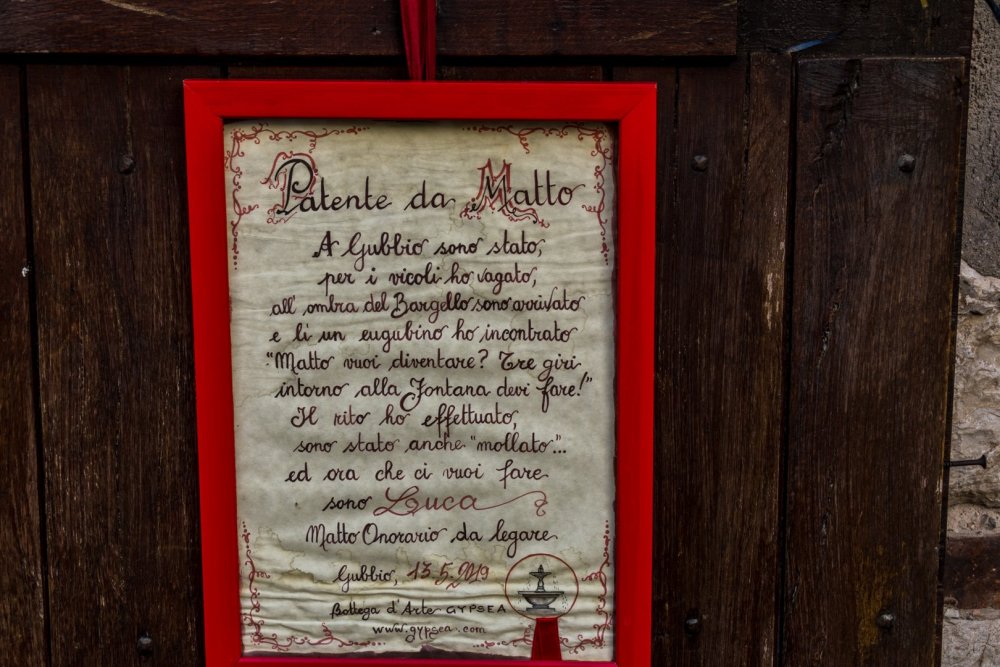 Patente da Matto
A Gubbio sono stato,
per i vicoli ho vagato,
all'ombra del Bargello sono arrivato
e lì un eugubino ho incontrato
"Matto vuoi diventare? Tre giri
intorno alla Fontana devi fare!"
Il rito ho effettuato,
sono stato anche "mollato"...
ed ora che ci vuoi fare
sono Luca
Matto Onorario da legare
Gubbio, 13.5.2019
Bottega d'Arte GYPSEA
www.gypsea.com